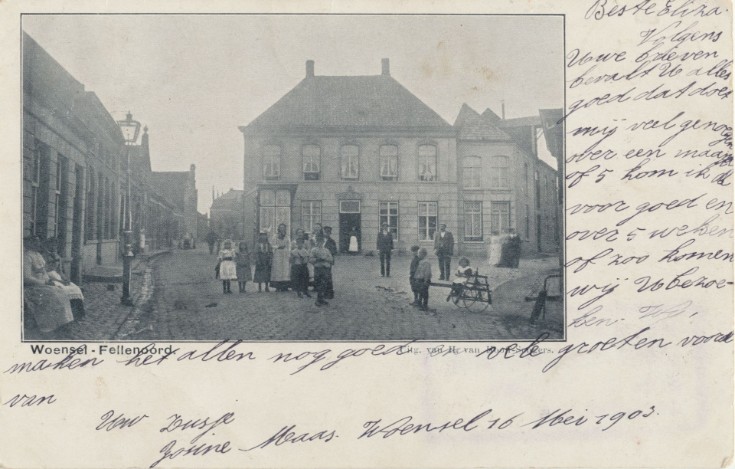 Beste Eliza.
Volgens
Uwe brieven
bevalt U alles
goed dat doet
mij veel genoegen
over een maand
of 5 kom ik
voor goed en
over 5 weken
of zoo komen
wij U bezoe-
ken. Wij
Woensel - Fellenoord.
Uitg. van
maken het allen nog goed veel groeten voord
van
Uw Zusje
Maas. Woensel 16 Mei 1903.